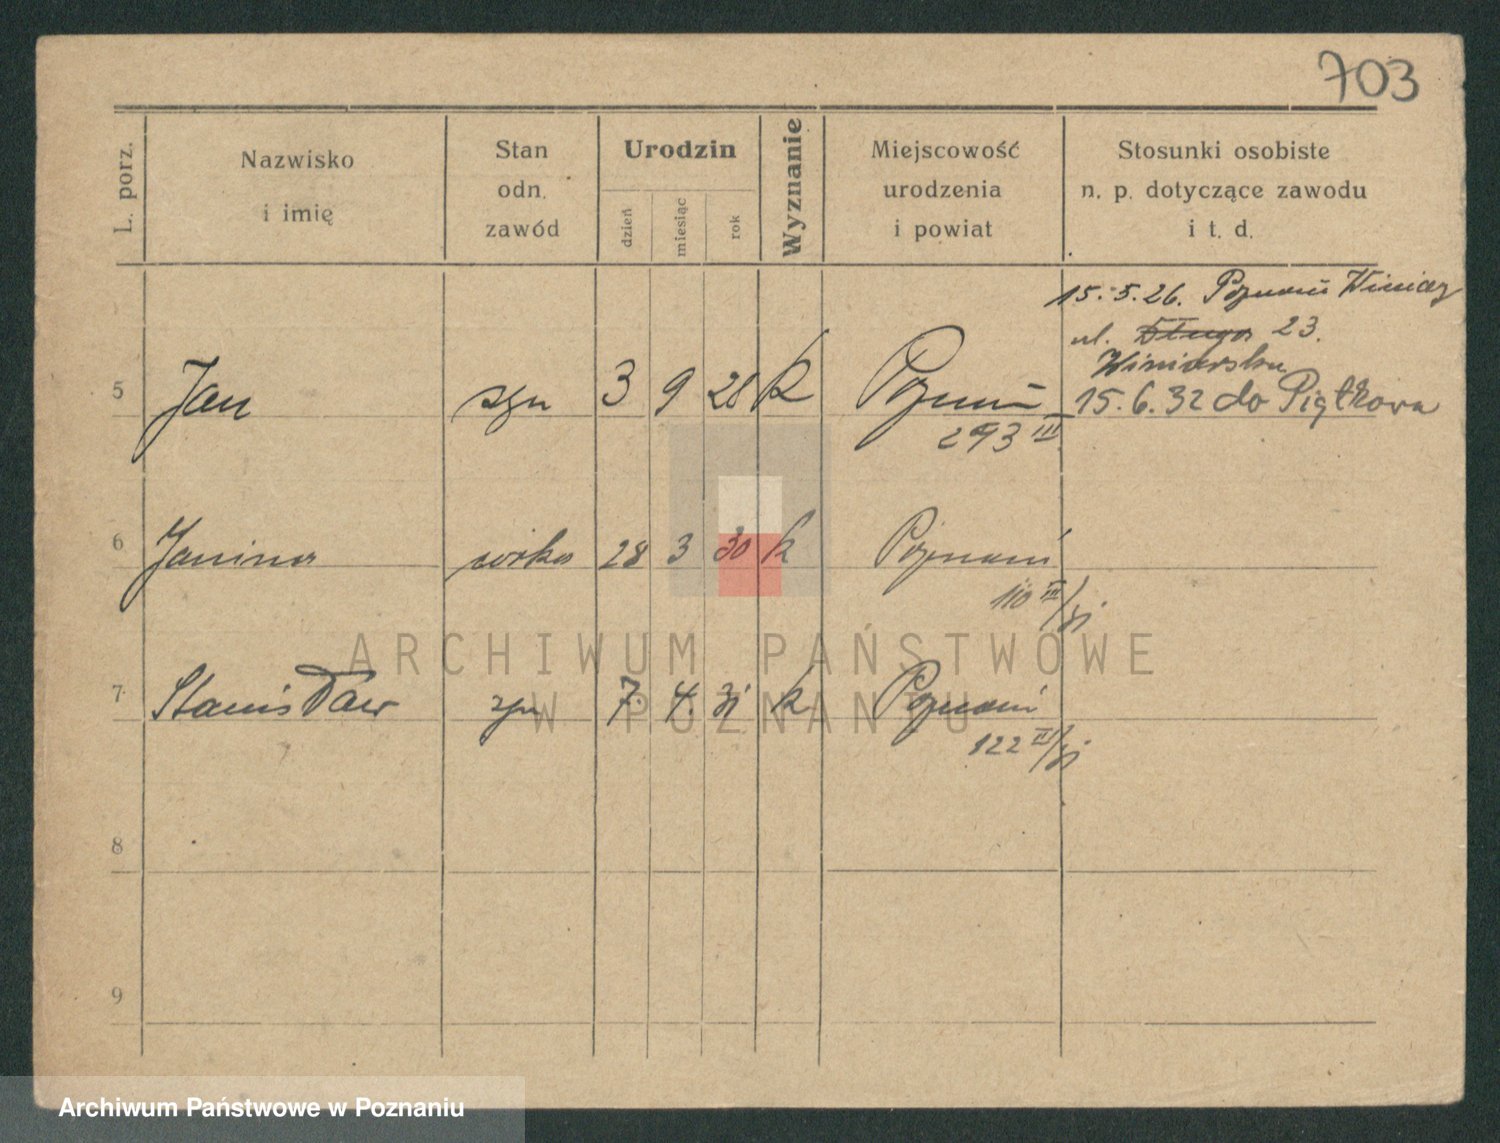 703
L. porz.
Nazwisko
i imię
Stan
odn.
zawód
Urodzin
dzień
miesiąc
rok
Wyznanie
Miejscowość
urodzenia
i powiat
Stosunki osobiste
n. p. dotyczące zawodu
i t. d.
15.5.26. Poznań Winiary
ul. Długa 23.
Winiarska
15.6.32 do Piątkowa
5 Jan syn 3 9 28 k Poznań
293 III
6 Janina córka 28 3 30 k Poznań
110 III/
7 Stanisław syn 7. 4. 31 k Poznań
122 III/31
8
9
ARCHIWUM PAŃSTWOWE
W POZNANIU
Archiwum Państwowe w Poznaniu